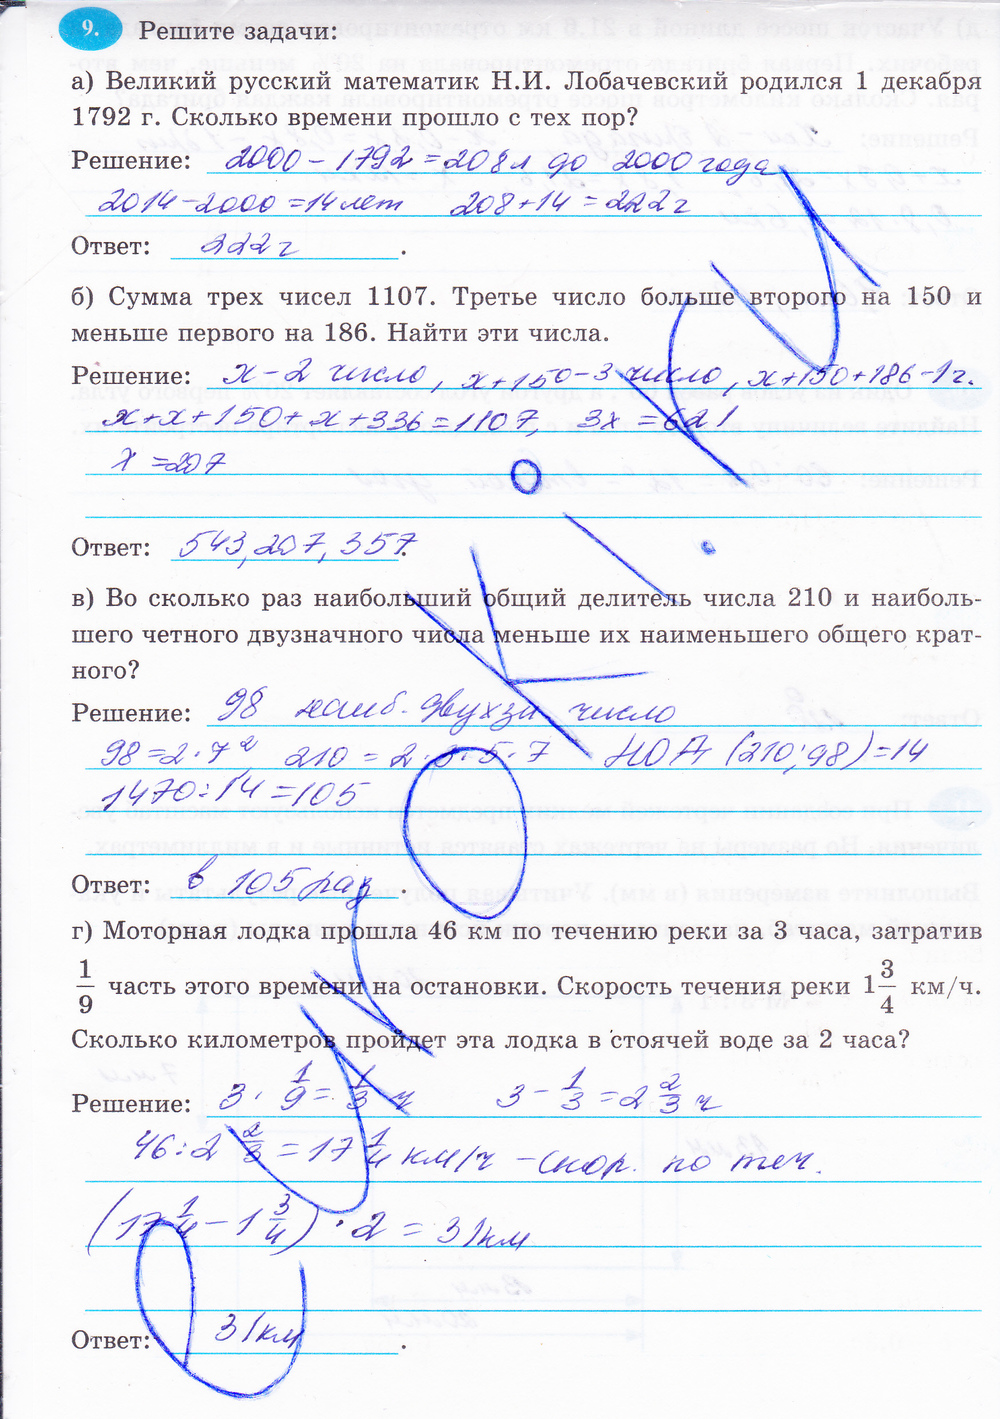 9. Решите задачи:
а) Великий русский математик Н.И. Лобачевский родился 1 декабря
1792 г. Сколько времени прошло с тех пор?
Решение: 2000 - 1792 = 208 л до 2000 года
2014 - 2000 = 14 лет 208 + 14 = 222 г
Ответ: 222 г .
б) Сумма трех чисел 1107. Третье число больше второго на 150 и
меньше первого на 186. Найти эти числа.
Решение: x - 2 число, x + 150 - 3 число, x + 150 + 186 - 1 г.
x + x + 150 + x + 336 = 1107, 3x = 621
x = 207
Ответ: 543, 207, 357.
в) Во сколько раз наибольший общий делитель числа 210 и наиболь-
шего четного двузначного числа меньше их наименьшего общего крат-
ного?
Решение: 98 наиб. двухзн число
98 = 2 · 7² , 210 = 2 · 3 · 5 · 7 НОД (210; 98) = 14
1470 : 14 = 105
Ответ: в 105 раз .
г) Моторная лодка прошла 46 км по течению реки за 3 часа, затратив
1/9 часть этого времени на остановки. Скорость течения реки 1 3/4 км/ч.
Сколько километров пройдет эта лодка в стоячей воде за 2 часа?
Решение: 3 · 1/9 = 1/3 ч 3 - 1/3 = 2 2/3 ч
46 : 2 2/3 = 17 1/4 км/ч - скор. по теч.
(17 1/4 - 1 3/4) · 2 = 31 км
Ответ: 31 км .